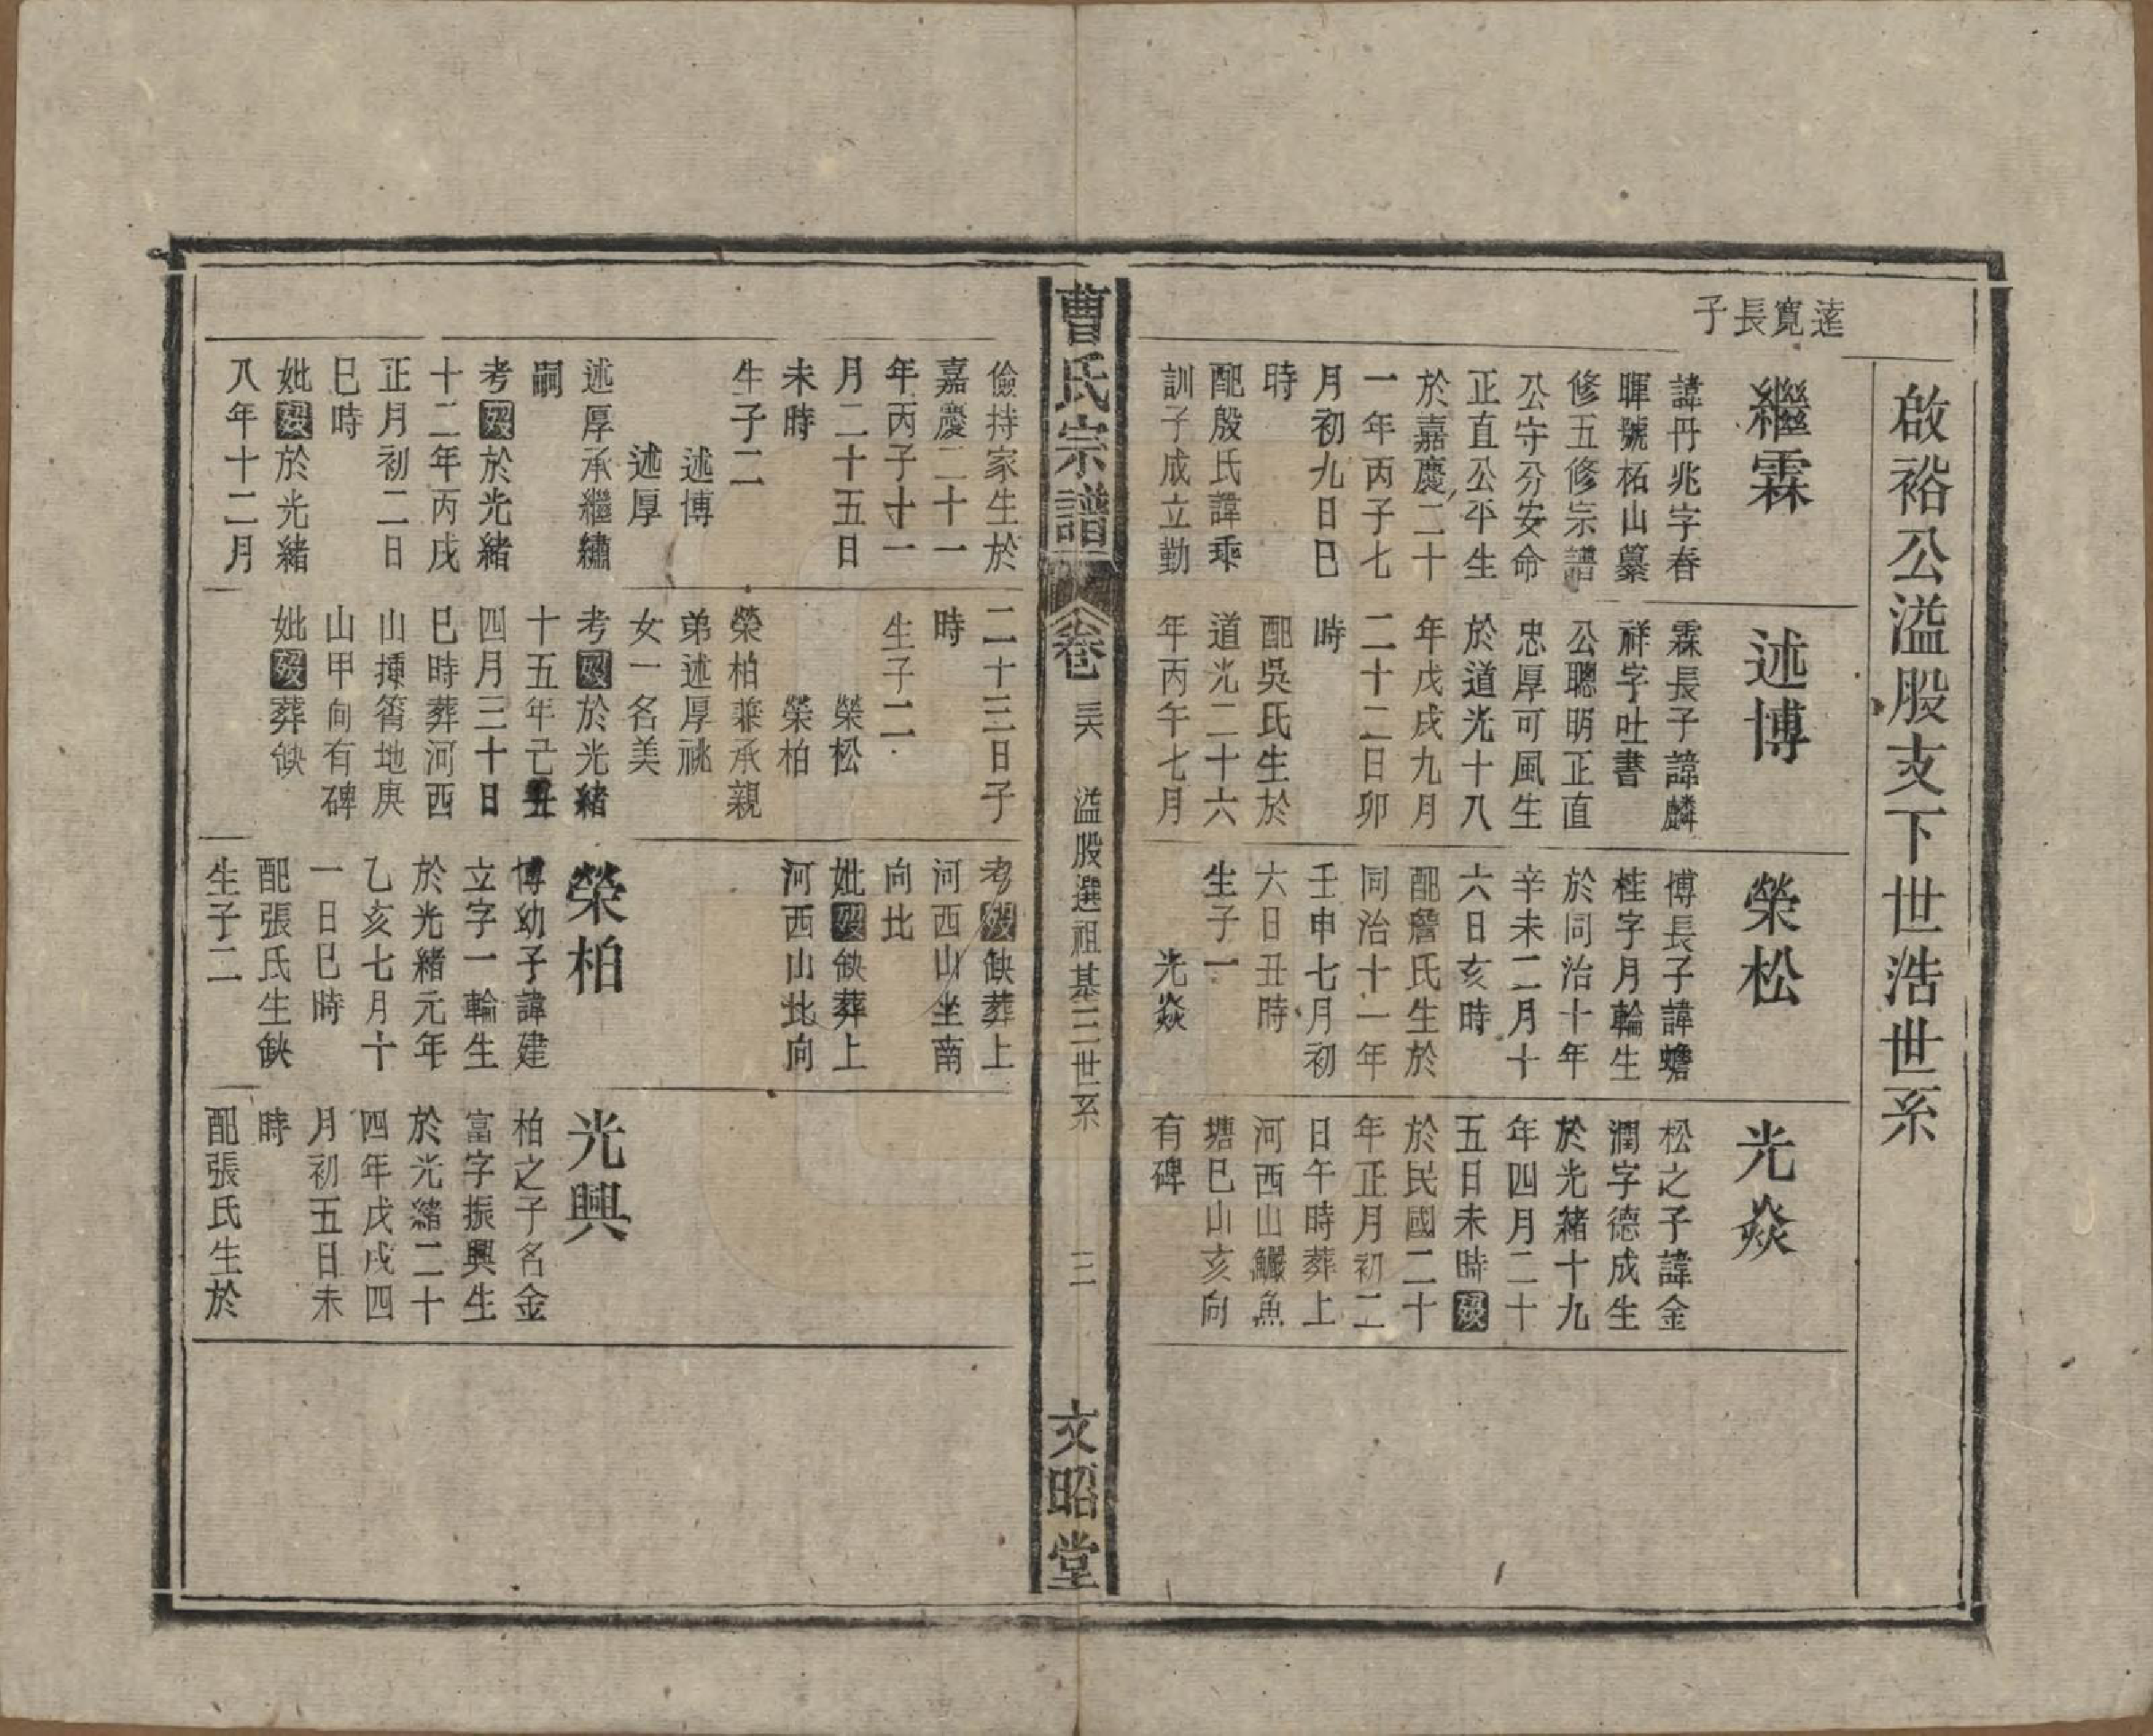 啟裕公溢股支下世浩世系
達寬長子
繼霖
諱丹兆字春
暉號柘山纂
修五修宗譜
公守分安命
正直公平生
於嘉慶二十
一年丙子七
月初九日巳
時
配殷氏諱乖
訓子成立勤
述博
霖長子諱麟
祥字吐書
公聰明正直
忠厚可風生
於道光十八
年戊戌九月
二十二日卯
時
配吳氏生於
道光二十六
年丙午七月
榮松
博長子諱蟾
桂字月輪生
於同治十年
辛未二月十
六日亥時
配詹氏生於
同治十一年
壬申七月初
六日丑時
生子一
光焱
光焱
松之子諱金
潤字德成生
於光緒十九
年四月二十
五日未時歿
於民國二十
年正月初二
日午時葬上
河西山鱖魚
塘巳山亥向
有碑
曹氏宗譜
卷三六
溢股選祖基三世系
三
文昭堂
儉持家生於
嘉慶二十一
年丙子十一
月二十五日
未時
生子二
述博
述厚
述厚承繼繡
嗣
考歿於光緒
十二年丙戌
正月初二日
巳時
妣歿於光緒
八年十二月
二十三日子
時
生子二
榮松
榮柏
榮柏兼承親
弟述厚祧
女一名美
考歿於光緒
十五年己丑
四月三十日
巳時葬河西
山揰筲地庚
山甲向有碑
妣歿葬缺
考歿缺葬上
河西山坐南
向北
妣歿缺葬上
河西山北向
榮柏
博幼子諱建
立字一輪生
於光緒元年
乙亥七月十
一日巳時
配張氏生缺
生子二
光興
柏之子名金
富字振興生
於光緒二十
四年戊戌四
月初五日未
時
配張氏生於